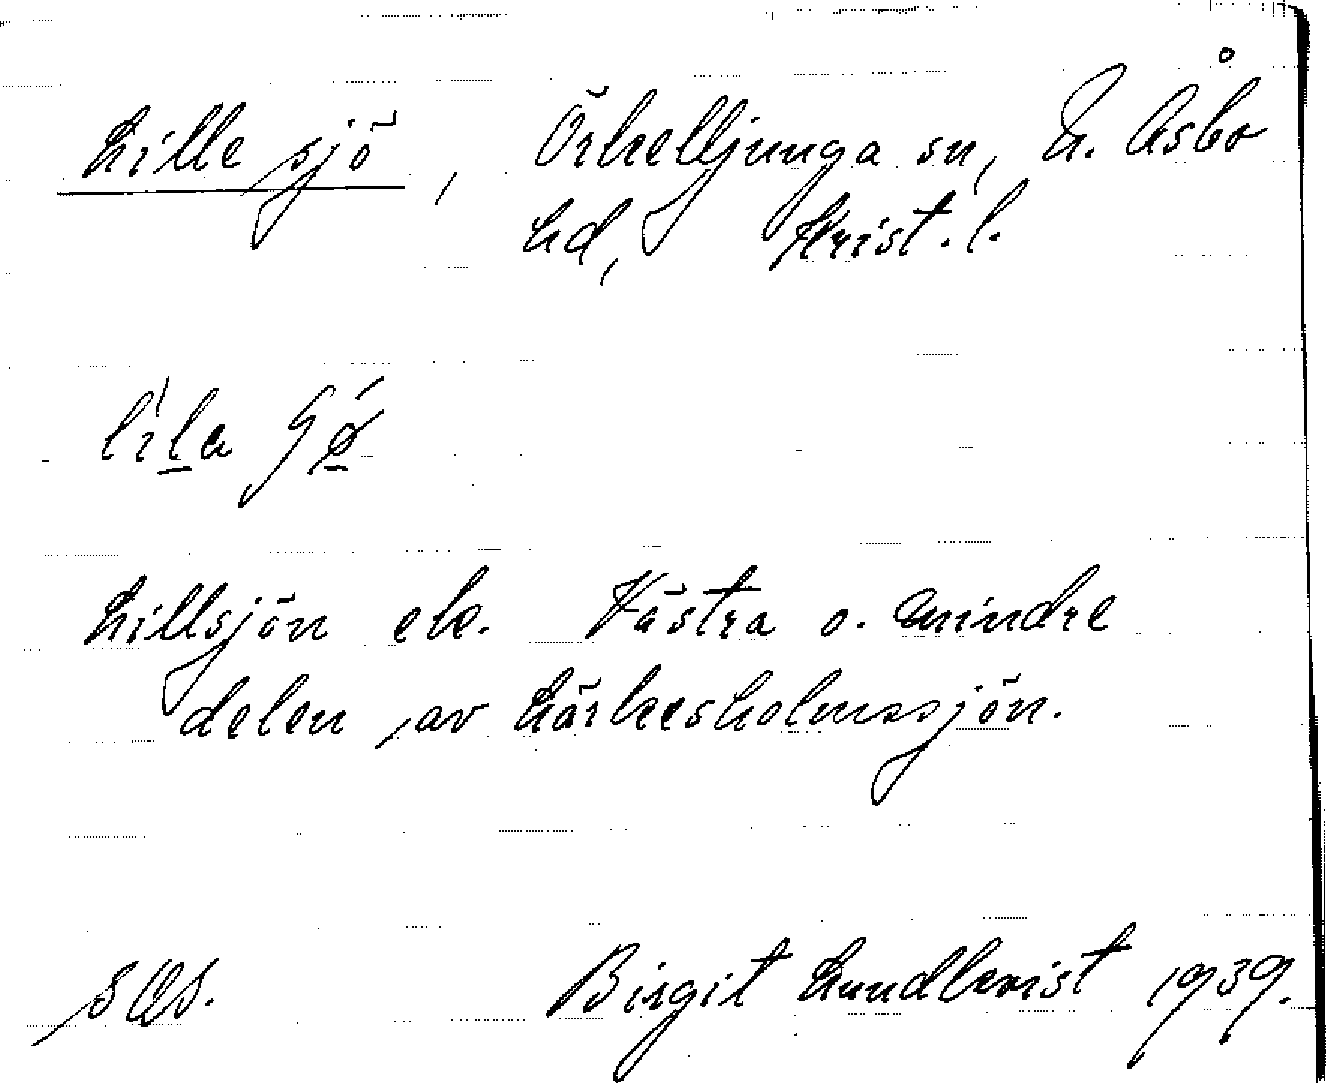 Lille sjö, Örkelljunga sn, N. Åsbo
hd, Krist. l.
Lillsjön ek. Västra o. mindre
delen av Härkesholmssjön.
SOS.
Birgit Lundkvist 1939.